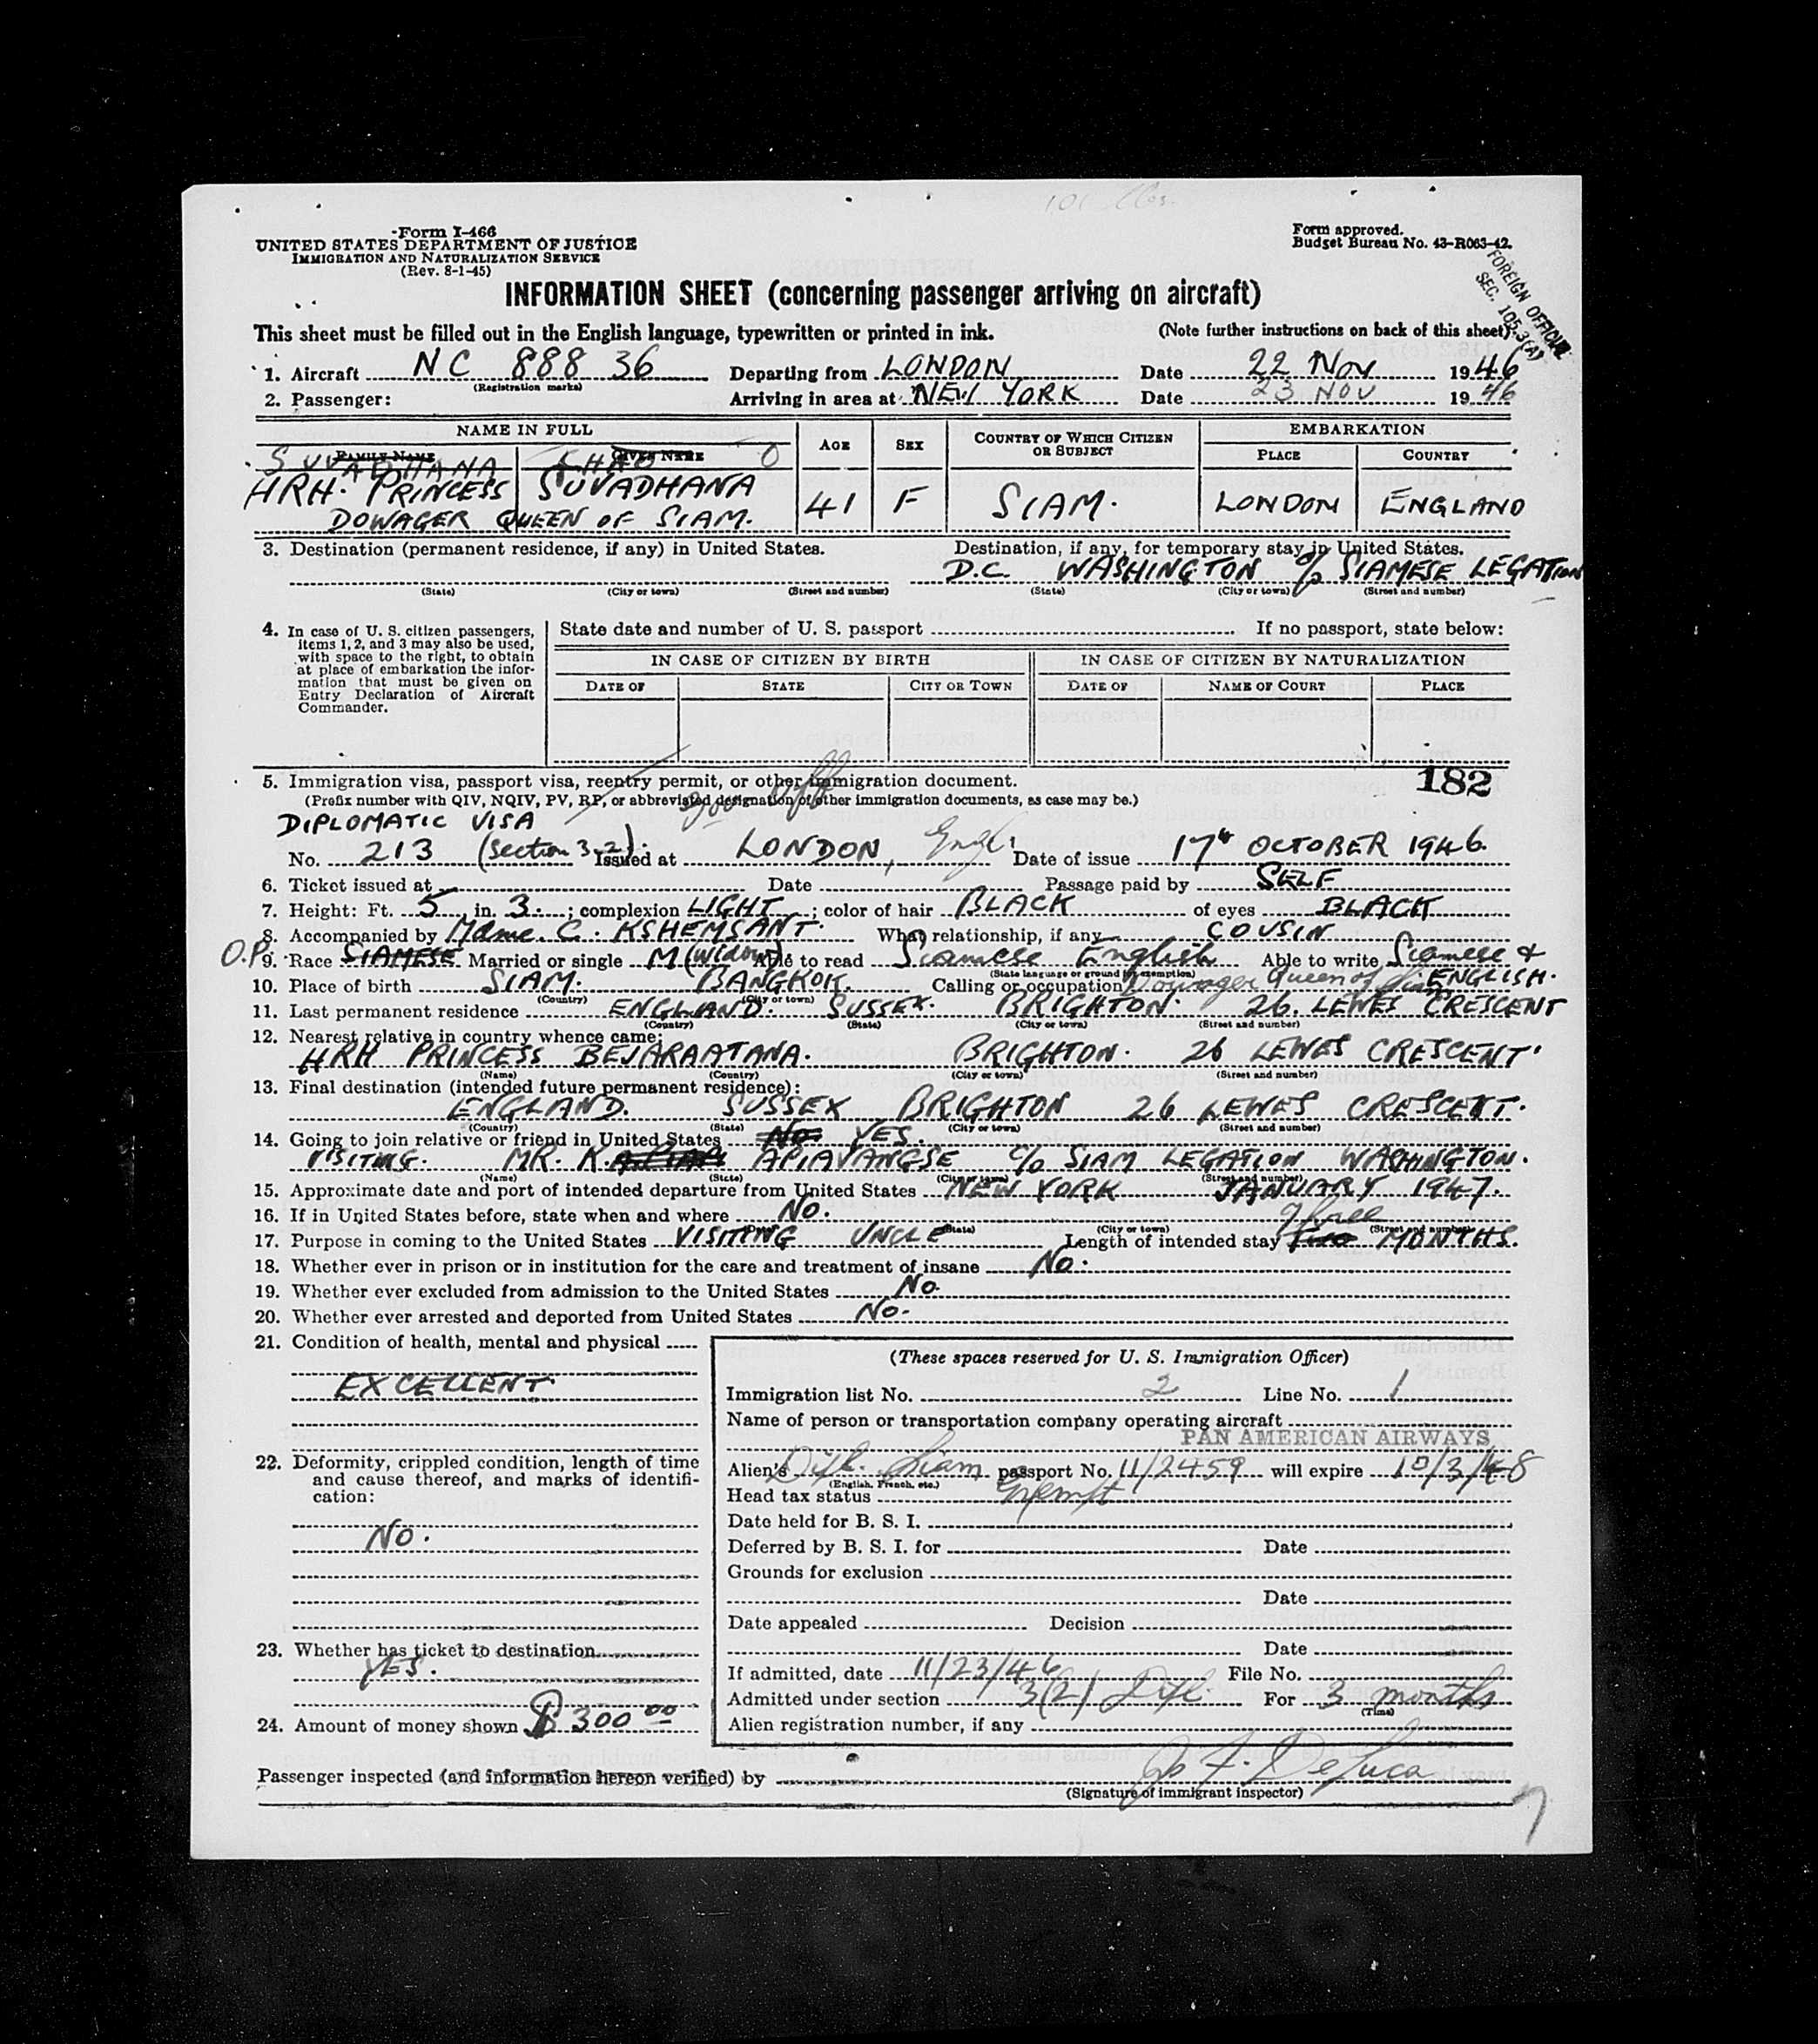 Form I-466
UNITED STATES DEPARTMENT OF JUSTICE
IMMIGRATION AND NATURALIZATION SERVICE
(Rev. 8-1-45)
Form approved.
Budget Bureau No. 43-R063-42.
FOREIGN OFFICIAL
SEC. 105.3(A)
INFORMATION SHEET (concerning passenger arriving on aircraft)
This sheet must be filled out in the English language, typewritten or printed in ink. (Note further instructions on back of this sheet)
1. Aircraft NC 888 36 Departing from LONDON Date 22 NOV 1946
(Registration marks)
2. Passenger: Arriving in area at NEW YORK Date 23 NOV 1946
NAME IN FULL AGE SEX COUNTRY OF WHICH CITIZEN OR SUBJECT EMBARKATION
FAMILY NAME GIVEN NAME PLACE COUNTRY
SUVADHANA CHAO
HRH. PRINCESS SUVADHANA 41 F SIAM. LONDON ENGLAND
DOWAGER QUEEN OF SIAM.
3. Destination (permanent residence, if any) in United States. Destination, if any, for temporary stay in United States.
D.C. WASHINGTON c/o SIAMESE LEGATION
(State) (City or town) (Street and number) (State) (City or town) (Street and number)
4. In case of U. S. citizen passengers, items 1, 2, and 3 may also be used, with space to the right, to obtain at place of embarkation the information that must be given on Entry Declaration of Aircraft Commander.
State date and number of U. S. passport If no passport, state below:
IN CASE OF CITIZEN BY BIRTH IN CASE OF CITIZEN BY NATURALIZATION
DATE OF STATE CITY OR TOWN DATE OF NAME OF COURT PLACE
182
5. Immigration visa, passport visa, reentry permit, or other immigration document.
(Prefix number with QIV, NQIV, PV, RP, or abbreviated designation of other immigration documents, as case may be.)
DIPLOMATIC VISA
No. 213 (Section 3-2). Issued at LONDON, Engl. Date of issue 17th OCTOBER 1946.
6. Ticket issued at Date Passage paid by SELF
7. Height: Ft. 5 in. 3. ; complexion LIGHT ; color of hair BLACK of eyes BLACK
8. Accompanied by Mdme. C. KSHEMSANT. What relationship, if any COUSIN
O.P. 9. Race SIAMESE Married or single M (Widow) Able to read Siamese English Able to write Siamese & ENGLISH.
(State language or ground for exemption)
10. Place of birth SIAM. BANGKOK. Calling or occupation Dowager Queen of Siam
(Country) (City or town)
11. Last permanent residence ENGLAND. SUSSEX. BRIGHTON. 26. LEWES CRESCENT
(Country) (State) (City or town) (Street and number)
12. Nearest relative in country whence came:
HRH PRINCESS BEJARAATANA. BRIGHTON. 26 LEWES CRESCENT.
(Name) (Country) (City or town) (Street and number)
13. Final destination (intended future permanent residence):
ENGLAND. SUSSEX BRIGHTON 26 LEWES CRESCENT.
(Country) (State) (City or town) (Street and number)
14. Going to join relative or friend in United States No YES.
VISITING. MR. K. APIAVANGSE c/o SIAM LEGATION WASHINGTON.
(Name) (State) (City or town) (Street and number)
15. Approximate date and port of intended departure from United States NEW YORK JANUARY 1947.
16. If in United States before, state when and where No.
(Date) (State) (City or town) (Street and number)
17. Purpose in coming to the United States VISITING UNCLE Length of intended stay Two Three MONTHS.
18. Whether ever in prison or in institution for the care and treatment of insane No.
19. Whether ever excluded from admission to the United States No.
20. Whether ever arrested and deported from United States No.
21. Condition of health, mental and physical
EXCELLENT.
22. Deformity, crippled condition, length of time and cause thereof, and marks of identification:
No.
23. Whether has ticket to destination
YES.
24. Amount of money shown $ 300 00
(These spaces reserved for U. S. Immigration Officer)
Immigration list No. 2 Line No. 1
Name of person or transportation company operating aircraft
PAN AMERICAN AIRWAYS
Alien's Dipl. Siam passport No. 11/2459 will expire 10/3/48
(English, French, etc.)
Head tax status Exempt
Date held for B. S. I.
Deferred by B. S. I. for Date
Grounds for exclusion
Date
Date appealed Decision
Date
If admitted, date 11/23/46 File No.
Admitted under section 3(2) Dipl. For 3 months
(Time)
Alien registration number, if any
Passenger inspected (and information hereon verified) by Jo F. DeLuca
(Signature of immigrant inspector)